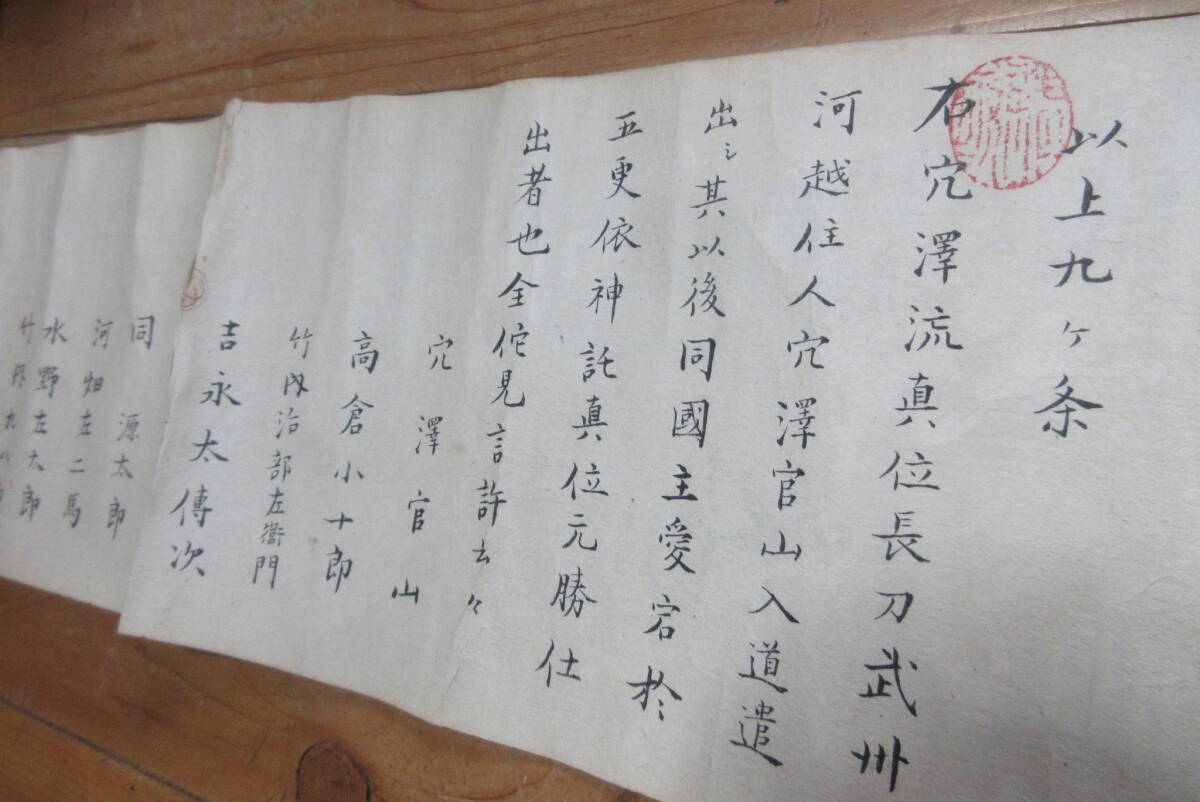 以上九ヶ条
右穴澤流真位長刀武州
河越住人穴澤官山入道遣
出シ其以後同國主愛宕於
五更依神託真位元勝仕
出者也全佗見言許去々
穴澤官山
高倉小十郎
竹内治部左衛門
吉永太傳次
同源太郎
河畑左二馬
水野左太郎
竹